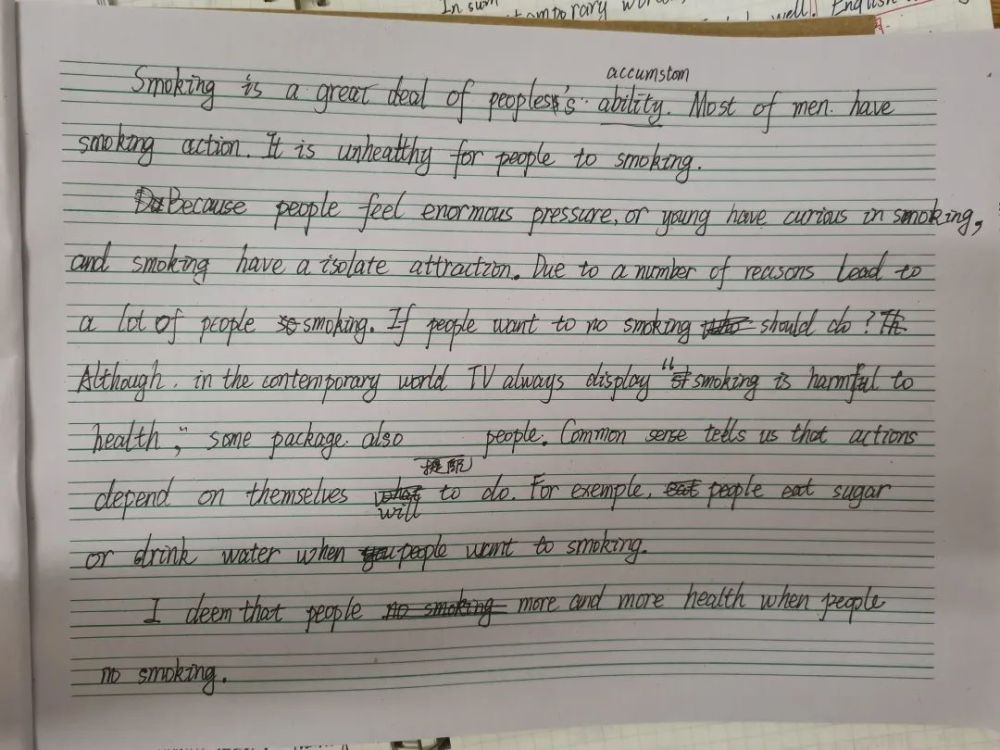 In sum
temporary wor
well! English
accumstom
Smoking is a great deal of peoples's ability. Most of men have
smoking action. It is unhealthy for people to smoking.
Because people feel enormous pressure, or young have curious in smoking,
and smoking have a isolate attraction. Due to a number of reasons lead to
a lot of people smoking. If people want to no smoking should do?
Although, in the contemporary world TV always display "smoking is harmful to
health," some package also people. Common serse tells us that actions
提醒
depend on themselves to do. For exemple, people eat sugar
will
or drink water when people want to smoking.
I deem that people more and more health when people
no smoking.